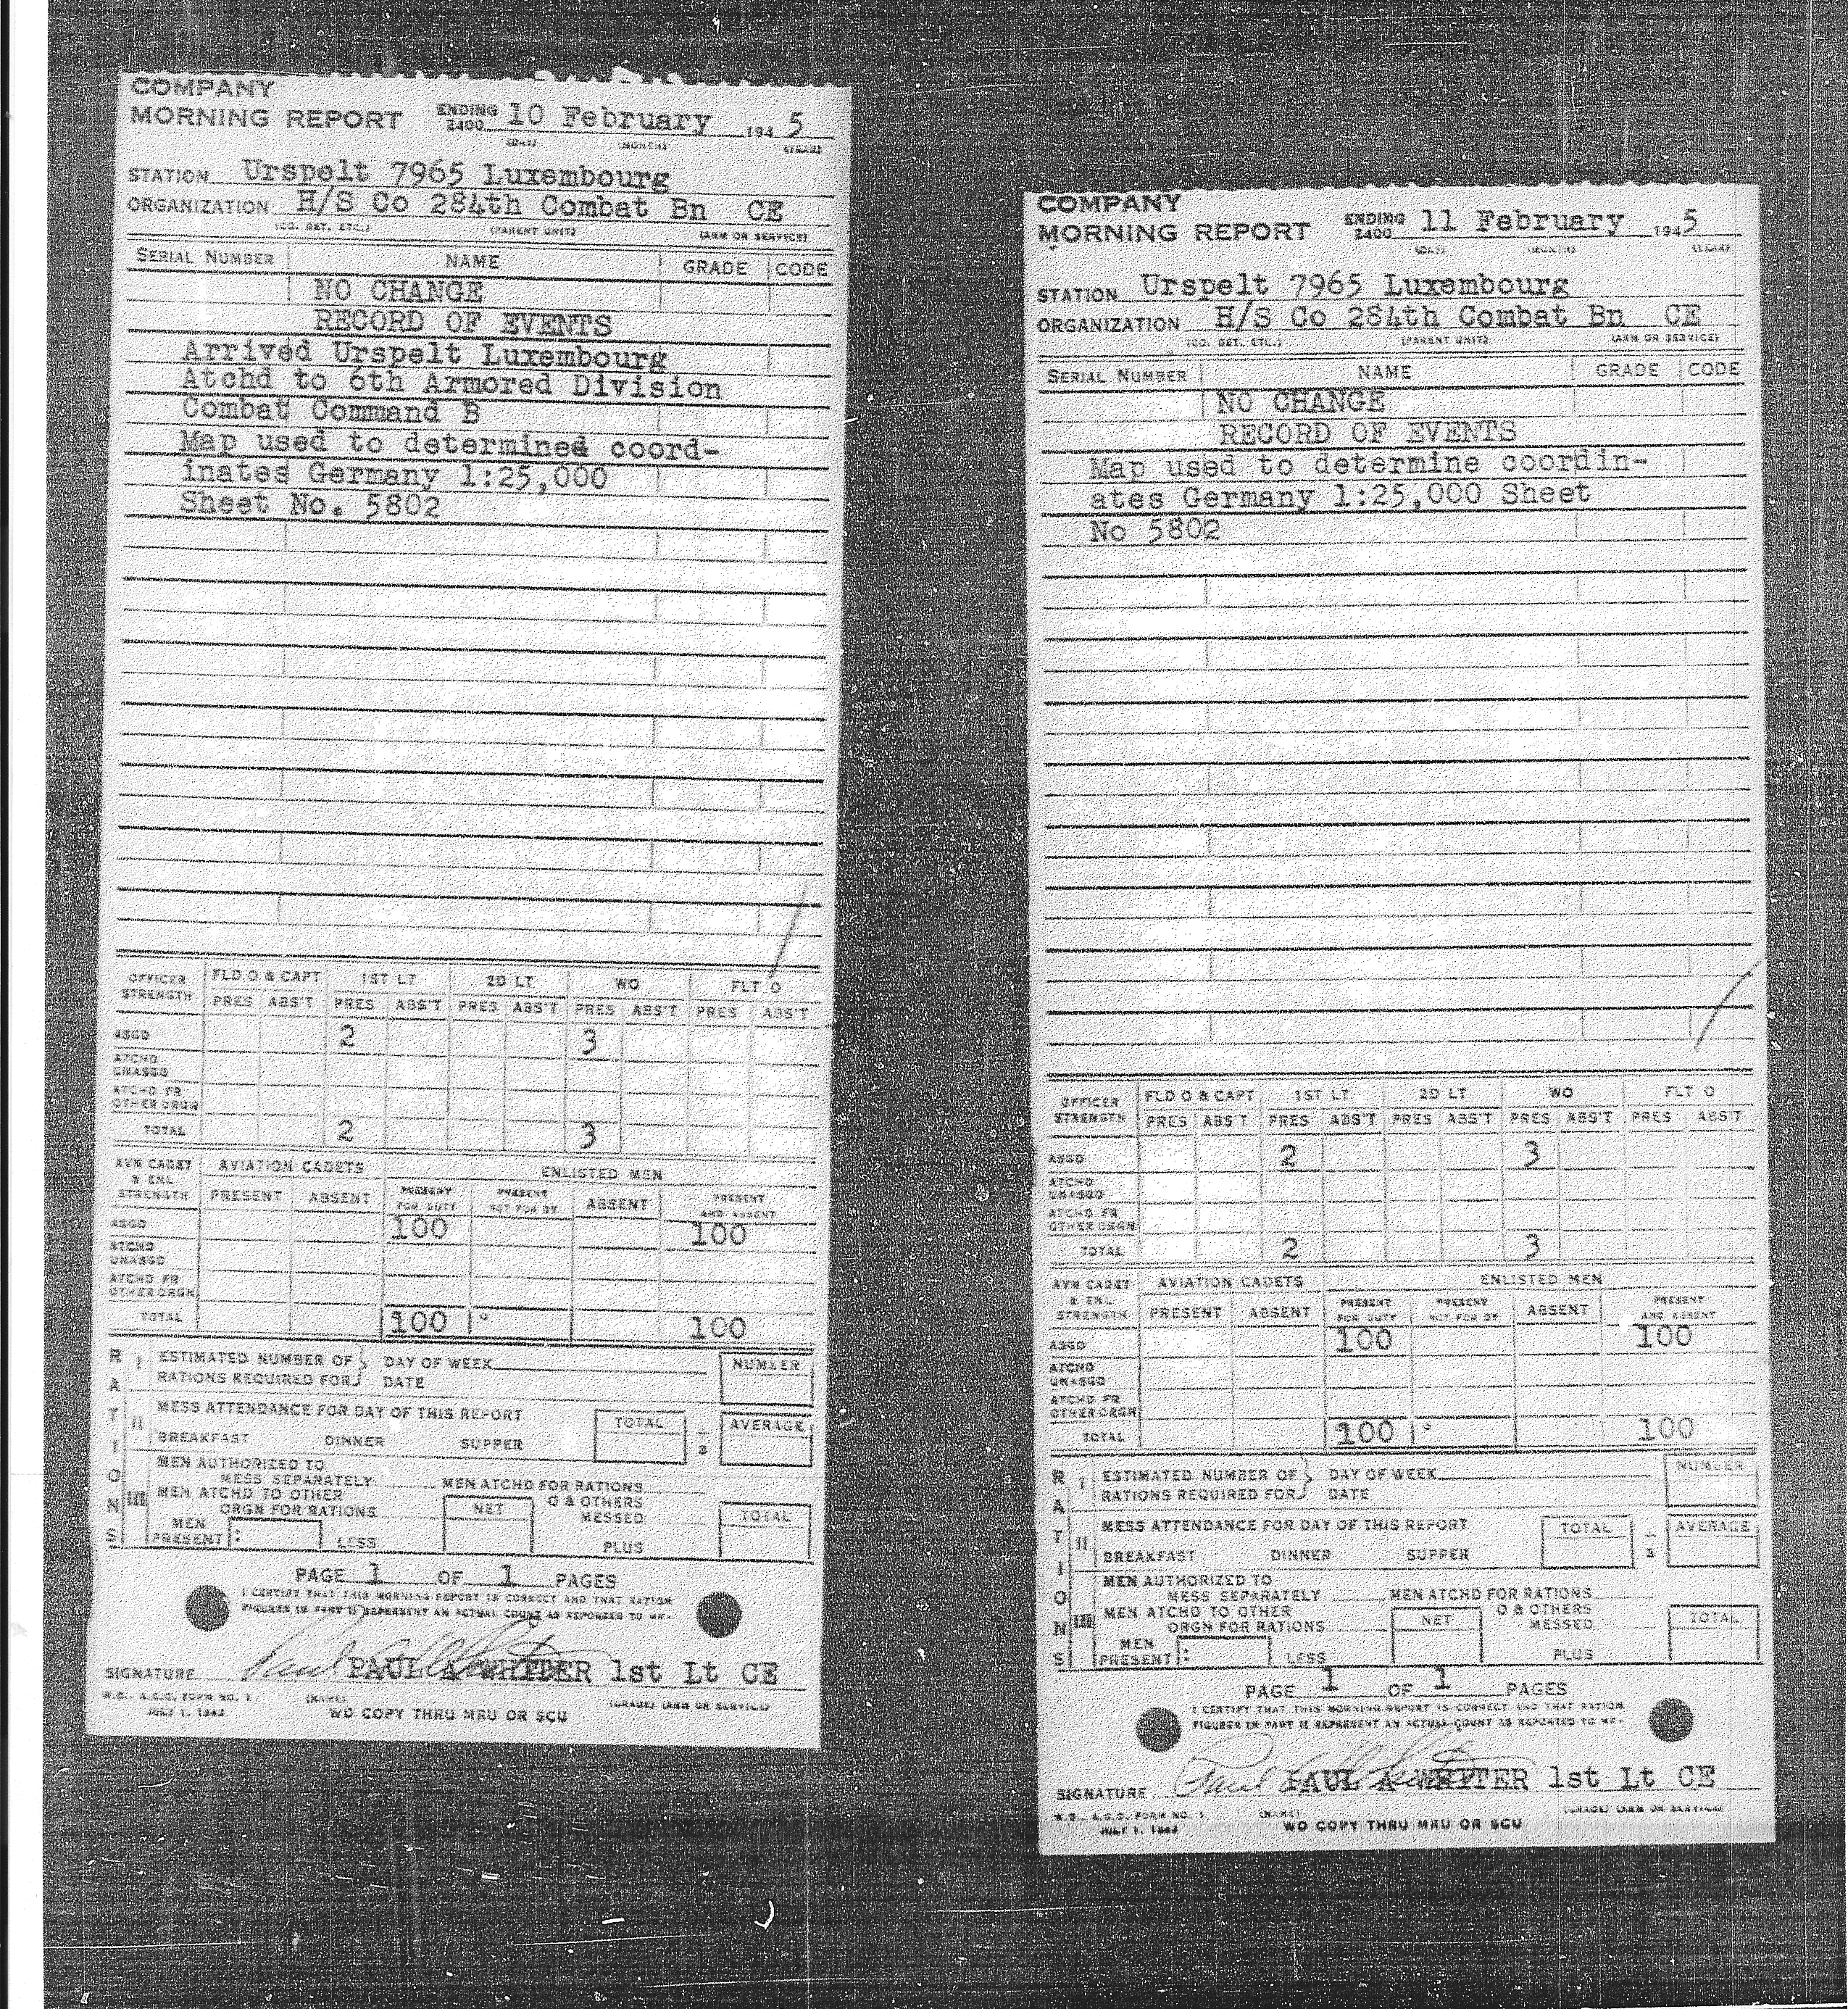 COMPANY
MORNING REPORT ENDING 2400 10 February 194 5
(DAY) (MONTH) (YEAR)
STATION Urspelt 7965 Luxembourg
ORGANIZATION H/S Co 284th Combat Bn CE
(CO. DET. ETC.) (PARENT UNIT) (ARM OR SERVICE)
SERIAL NUMBER NAME GRADE CODE
NO CHANGE
RECORD OF EVENTS
Arrived Urspelt Luxembourg
Atchd to 6th Armored Division
Combat Command B
Map used to determined coord-
inates Germany 1:25,000
Sheet No. 5802
OFFICER STRENGTH FLD O & CAPT 1ST LT 2D LT WO FLT O
PRES ABS'T PRES ABS'T PRES ABS'T PRES ABS'T PRES ABS'T
ASGD 2 3
ATCHD UNASGD
ATCHD FR OTHER ORGN
TOTAL 2 3
AVN CADET & ENL STRENGTH AVIATION CADETS ENLISTED MEN
PRESENT ABSENT PRESENT FOR DUTY PRESENT NOT FOR DY ABSENT PRESENT AND ABSENT
ASGD 100 100
ATCHD UNASGD
ATCHD FR OTHER ORGN
TOTAL 100 100
RATIONS
I ESTIMATED NUMBER OF RATIONS REQUIRED FOR DAY OF WEEK DATE NUMBER
II MESS ATTENDANCE FOR DAY OF THIS REPORT TOTAL AVERAGE
BREAKFAST DINNER SUPPER 3
III MEN AUTHORIZED TO
MESS SEPARATELY MEN ATCHD FOR RATIONS
MEN ATCHD TO OTHER
ORGN FOR RATIONS NET O & OTHERS MESSED TOTAL
MEN PRESENT : LESS PLUS
PAGE 1 OF 1 PAGES
I CERTIFY THAT THIS MORNING REPORT IS CORRECT AND THAT RATION
FIGURES IN PART II REPRESENT AN ACTUAL COUNT AS REPORTED TO ME.
SIGNATURE PAUL A WHITER 1st Lt CE
W.D., A.G.O. FORM NO. 1 (NAME) (GRADE) (ARM OR SERVICE)
JULY 1, 1943 WD COPY THRU MRU OR SCU
COMPANY
MORNING REPORT ENDING 2400 11 February 194 5
(DAY) (MONTH) (YEAR)
STATION Urspelt 7965 Luxembourg
ORGANIZATION H/S Co 284th Combat Bn CE
(CO. DET. ETC.) (PARENT UNIT) (ARM OR SERVICE)
SERIAL NUMBER NAME GRADE CODE
NO CHANGE
RECORD OF EVENTS
Map used to determine coordin-
ates Germany 1:25,000 Sheet
No 5802
OFFICER STRENGTH FLD O & CAPT 1ST LT 2D LT WO FLT O
PRES ABS'T PRES ABS'T PRES ABS'T PRES ABS'T PRES ABS'T
ASGD 2 3
ATCHD UNASGD
ATCHD FR OTHER ORGN
TOTAL 2 3
AVN CADET & ENL STRENGTH AVIATION CADETS ENLISTED MEN
PRESENT ABSENT PRESENT FOR DUTY PRESENT NOT FOR DY ABSENT PRESENT AND ABSENT
ASGD 100 100
ATCHD UNASGD
ATCHD FR OTHER ORGN
TOTAL 100 100
RATIONS
I ESTIMATED NUMBER OF RATIONS REQUIRED FOR DAY OF WEEK DATE NUMBER
II MESS ATTENDANCE FOR DAY OF THIS REPORT TOTAL AVERAGE
BREAKFAST DINNER SUPPER 3
III MEN AUTHORIZED TO
MESS SEPARATELY MEN ATCHD FOR RATIONS
MEN ATCHD TO OTHER
ORGN FOR RATIONS NET O & OTHERS MESSED TOTAL
MEN PRESENT : LESS PLUS
PAGE 1 OF 1 PAGES
I CERTIFY THAT THIS MORNING REPORT IS CORRECT AND THAT RATION
FIGURES IN PART II REPRESENT AN ACTUAL COUNT AS REPORTED TO ME.
SIGNATURE PAUL A WHITER 1st Lt CE
W.D., A.G.O. FORM NO. 1 (NAME) (GRADE) (ARM OR SERVICE)
JULY 1, 1943 WD COPY THRU MRU OR SCU